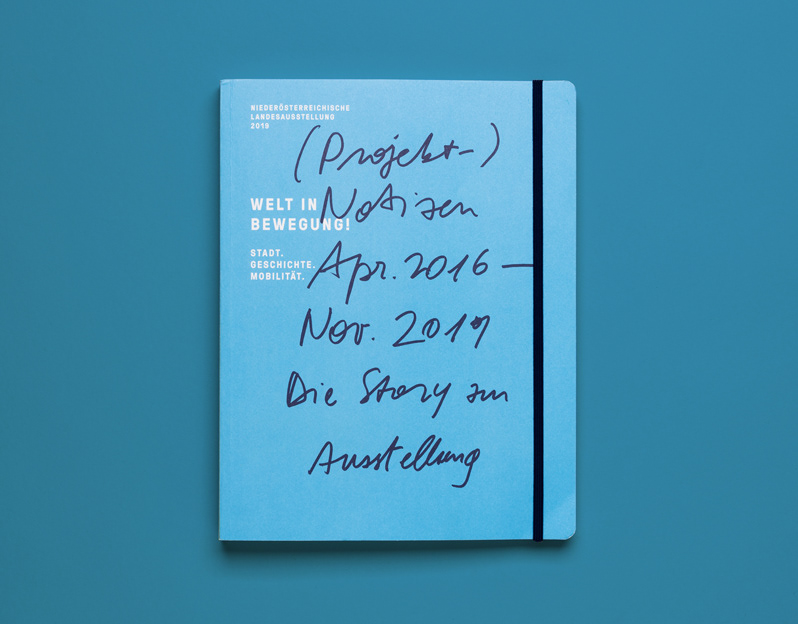 NIEDERÖSTERREICHISCHE
LANDESAUSSTELLUNG
2019
WELT IN
BEWEGUNG!
STADT.
GESCHICHTE.
MOBILITÄT.
(Projekt-)
Notizen
Apr. 2016 –
Nov. 2019
Die Story zur
Ausstellung